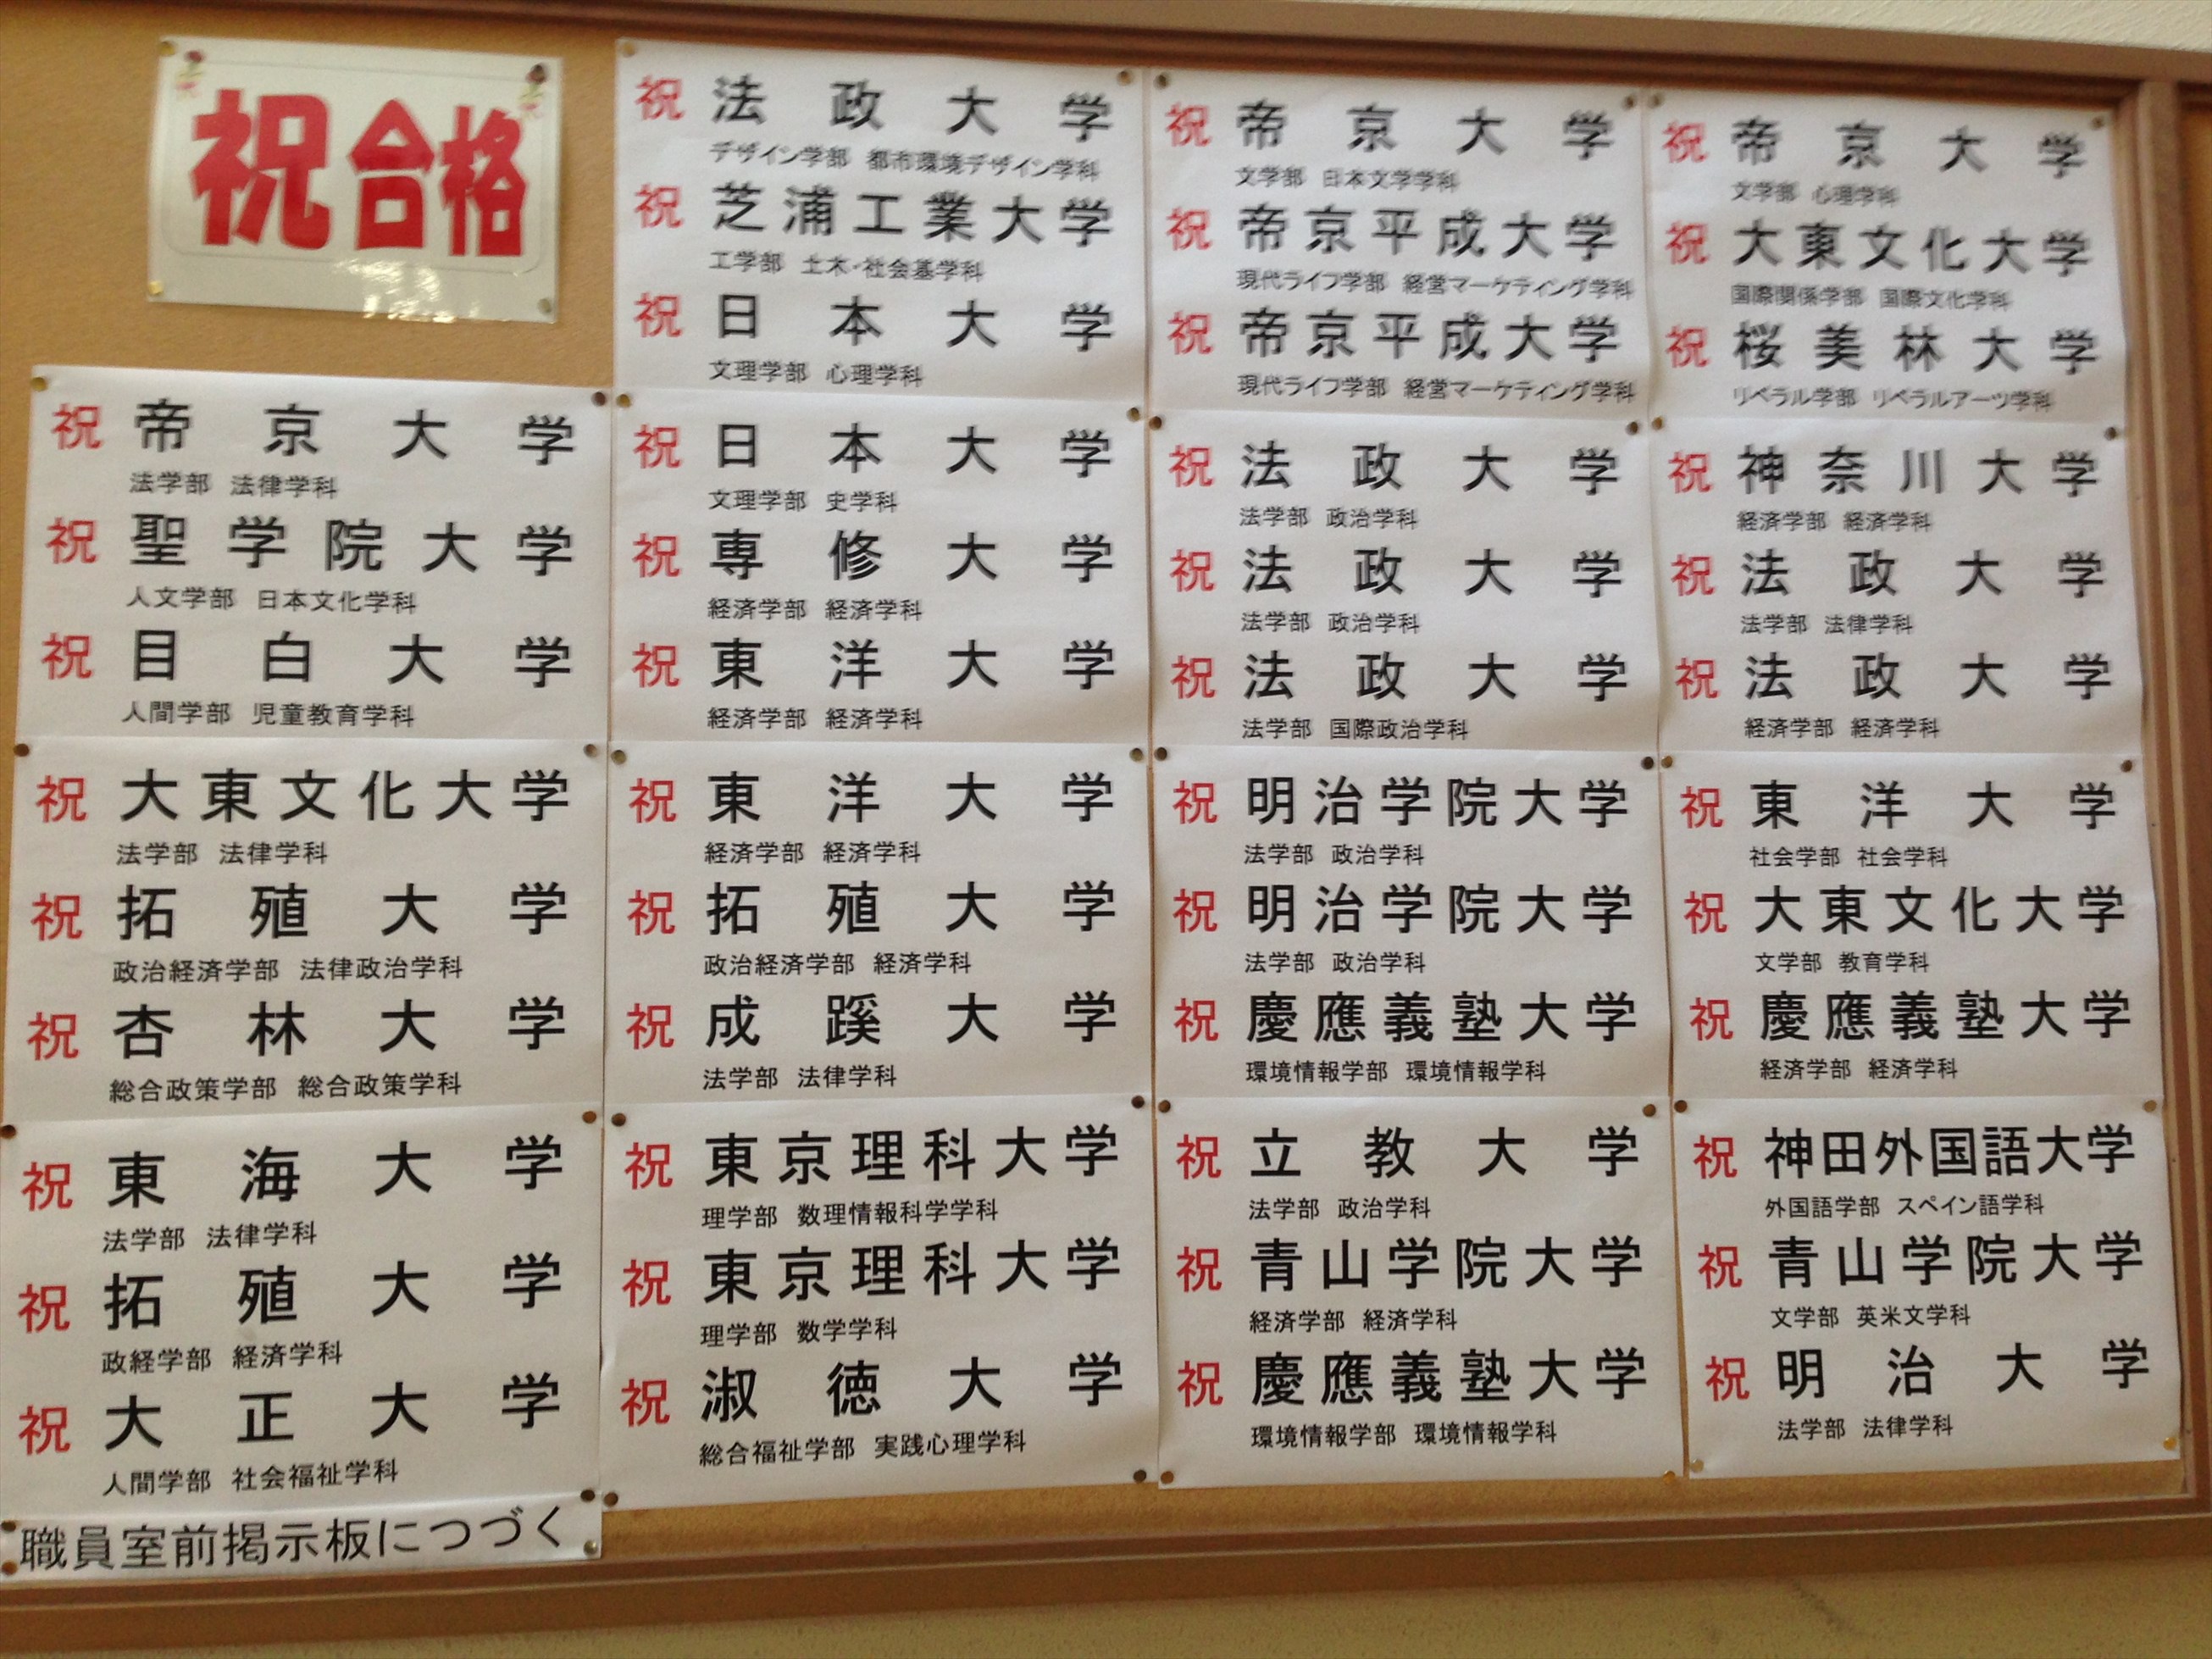 祝合格
祝 帝京大学
法学部 法律学科
祝 聖学院大学
人文学部 日本文化学科
祝 目白大学
人間学部 児童教育学科
祝 大東文化大学
法学部 法律学科
祝 拓殖大学
政治経済学部 法律政治学科
祝 杏林大学
総合政策学部 総合政策学科
祝 東海大学
法学部 法律学科
祝 拓殖大学
政経学部 経済学科
祝 大正大学
人間学部 社会福祉学科
職員室前掲示板につづく
祝 法政大学
デザイン学部 都市環境デザイン学科
祝 芝浦工業大学
工学部 土木・社会基学科
祝 日本大学
文理学部 心理学科
祝 日本大学
文理学部 史学科
祝 専修大学
経済学部 経済学科
祝 東洋大学
経済学部 経済学科
祝 東洋大学
経済学部 経済学科
祝 拓殖大学
政治経済学部 経済学科
祝 成蹊大学
法学部 法律学科
祝 東京理科大学
理学部 数理情報科学学科
祝 東京理科大学
理学部 数学学科
祝 淑徳大学
総合福祉学部 実践心理学科
祝 帝京大学
文学部 日本文学学科
祝 帝京平成大学
現代ライフ学部 経営マーケティング学科
祝 帝京平成大学
現代ライフ学部 経営マーケティング学科
祝 法政大学
法学部 政治学科
祝 法政大学
法学部 政治学科
祝 法政大学
法学部 国際政治学科
祝 明治学院大学
法学部 政治学科
祝 明治学院大学
法学部 政治学科
祝 慶應義塾大学
環境情報学部 環境情報学科
祝 立教大学
法学部 政治学科
祝 青山学院大学
経済学部 経済学科
祝 慶應義塾大学
環境情報学部 環境情報学科
祝 帝京大学
文学部 心理学科
祝 大東文化大学
国際関係学部 国際文化学科
祝 桜美林大学
リベラル学部 リベラルアーツ学科
祝 神奈川大学
経済学部 経済学科
祝 法政大学
法学部 法律学科
祝 法政大学
経済学部 経済学科
祝 東洋大学
社会学部 社会学科
祝 大東文化大学
文学部 教育学科
祝 慶應義塾大学
経済学部 経済学科
祝 神田外国語大学
外国語学部 スペイン語学科
祝 青山学院大学
文学部 英米文学科
祝 明治大学
法学部 法律学科